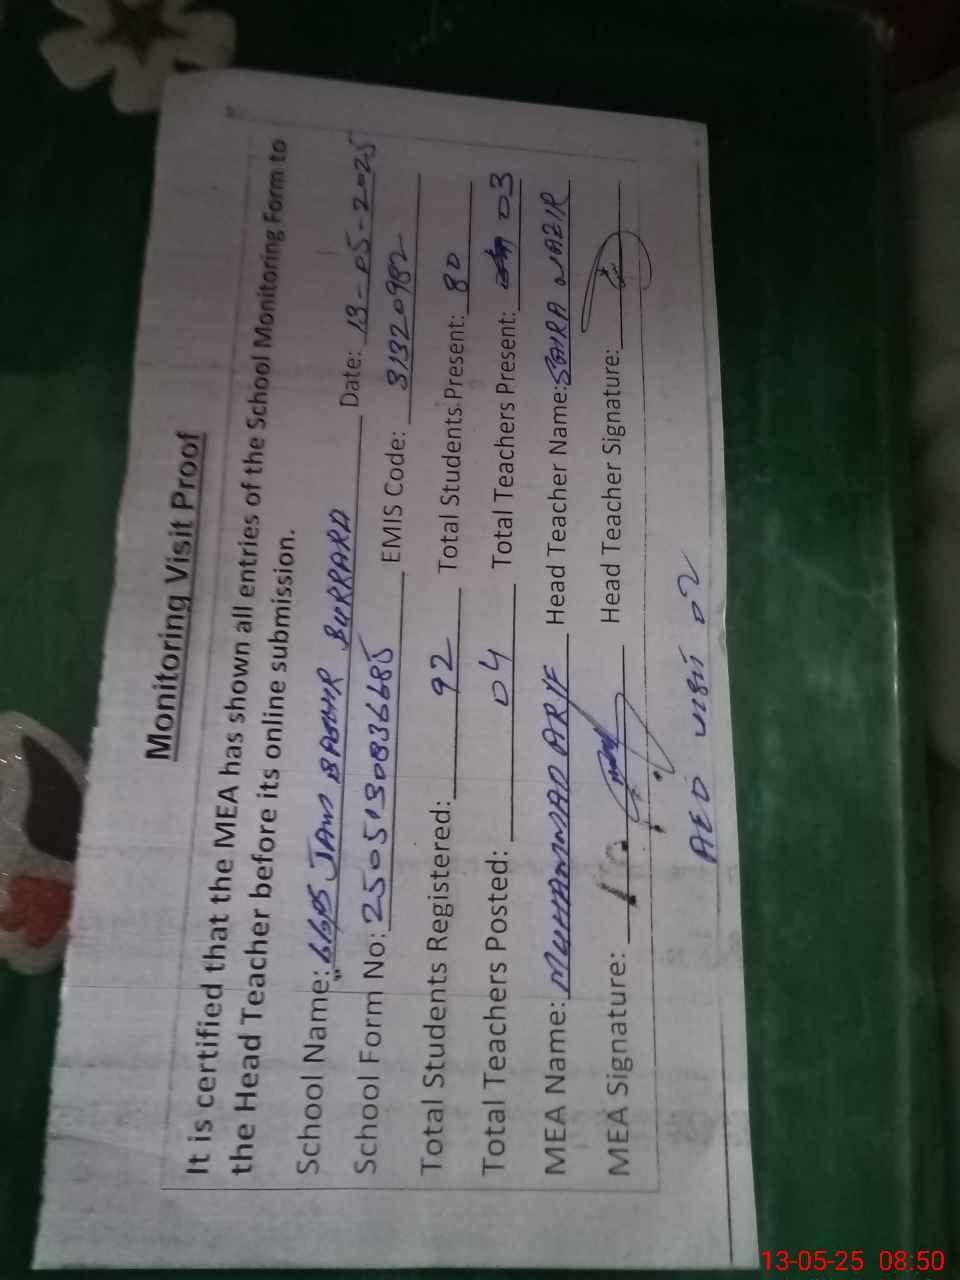 Monitoring Visit Proof
It is certified that the MEA has shown all entries of the School Monitoring Form to
the Head Teacher before its online submission.
School Name: GGPS JAM BURRARA Date: 13-05-2025
School Form No: 2505130836685 EMIS Code: 31320982
Total Students Registered: 92 Total Students Present: 80
Total Teachers Posted: 04 Total Teachers Present: 03
MEA Name: MUHAMMAD ARIF Head Teacher Name: SAIRA NAZIR
MEA Signature: Head Teacher Signature:
AEO visit 02
13-05-25 08:50